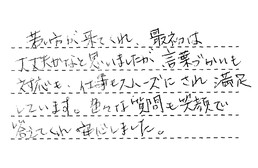 若い方が来てくれ、最初は
大丈夫かなと思いましたが、言葉づかいも
対応も、仕事もスムーズにされ満足
しています。色々な質問も笑顔で
答えてくれ安心しました。